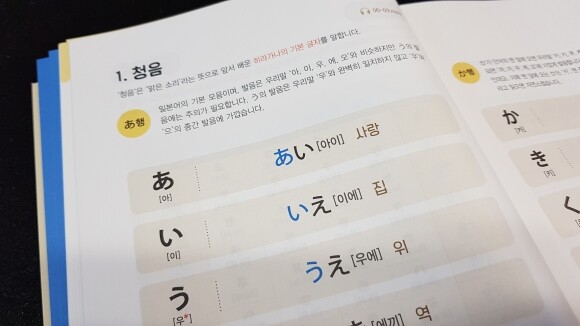 1. 청음
'청음'은 '맑은 소리'라는 뜻으로 앞서 배운 히라가나의 기본 글자를 말합니다.
あ행
일본어의 기본 모음이며, 발음은 우리말 '아, 이, 우, 에, 오'와 비슷하지만 う의 발
음에는 주의가 필요합니다. う의 발음은 우리말 '우'와 완벽히 일치하지 않고 '우'와
'으'의 중간 발음에 가깝습니다.
あ
[아]
あい [아이] 사랑
い
[이]
いえ [이에] 집
う
[우*]
うえ [우에] 위
[에끼] 역
か행
か
[카]
き
[키]
く